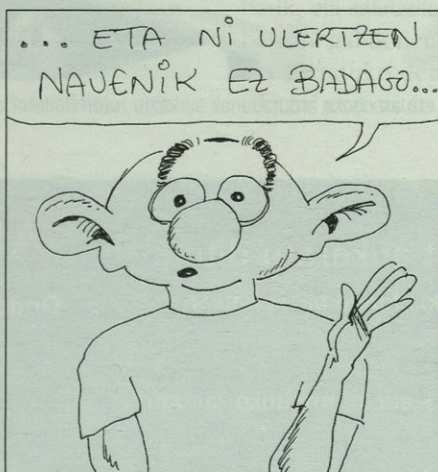 ... ETA Ni ULERTZEN
NAUENiK EZ BADAGO...